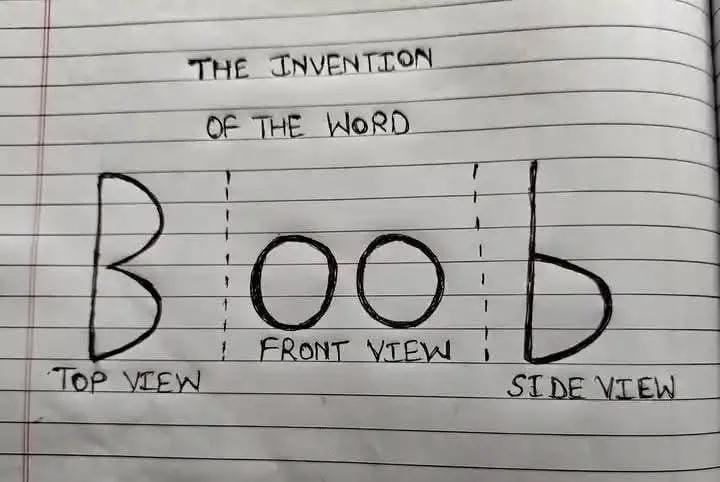 THE INVENTION
OF THE WORD
B oo b
TOP VIEW FRONT VIEW SIDE VIEW